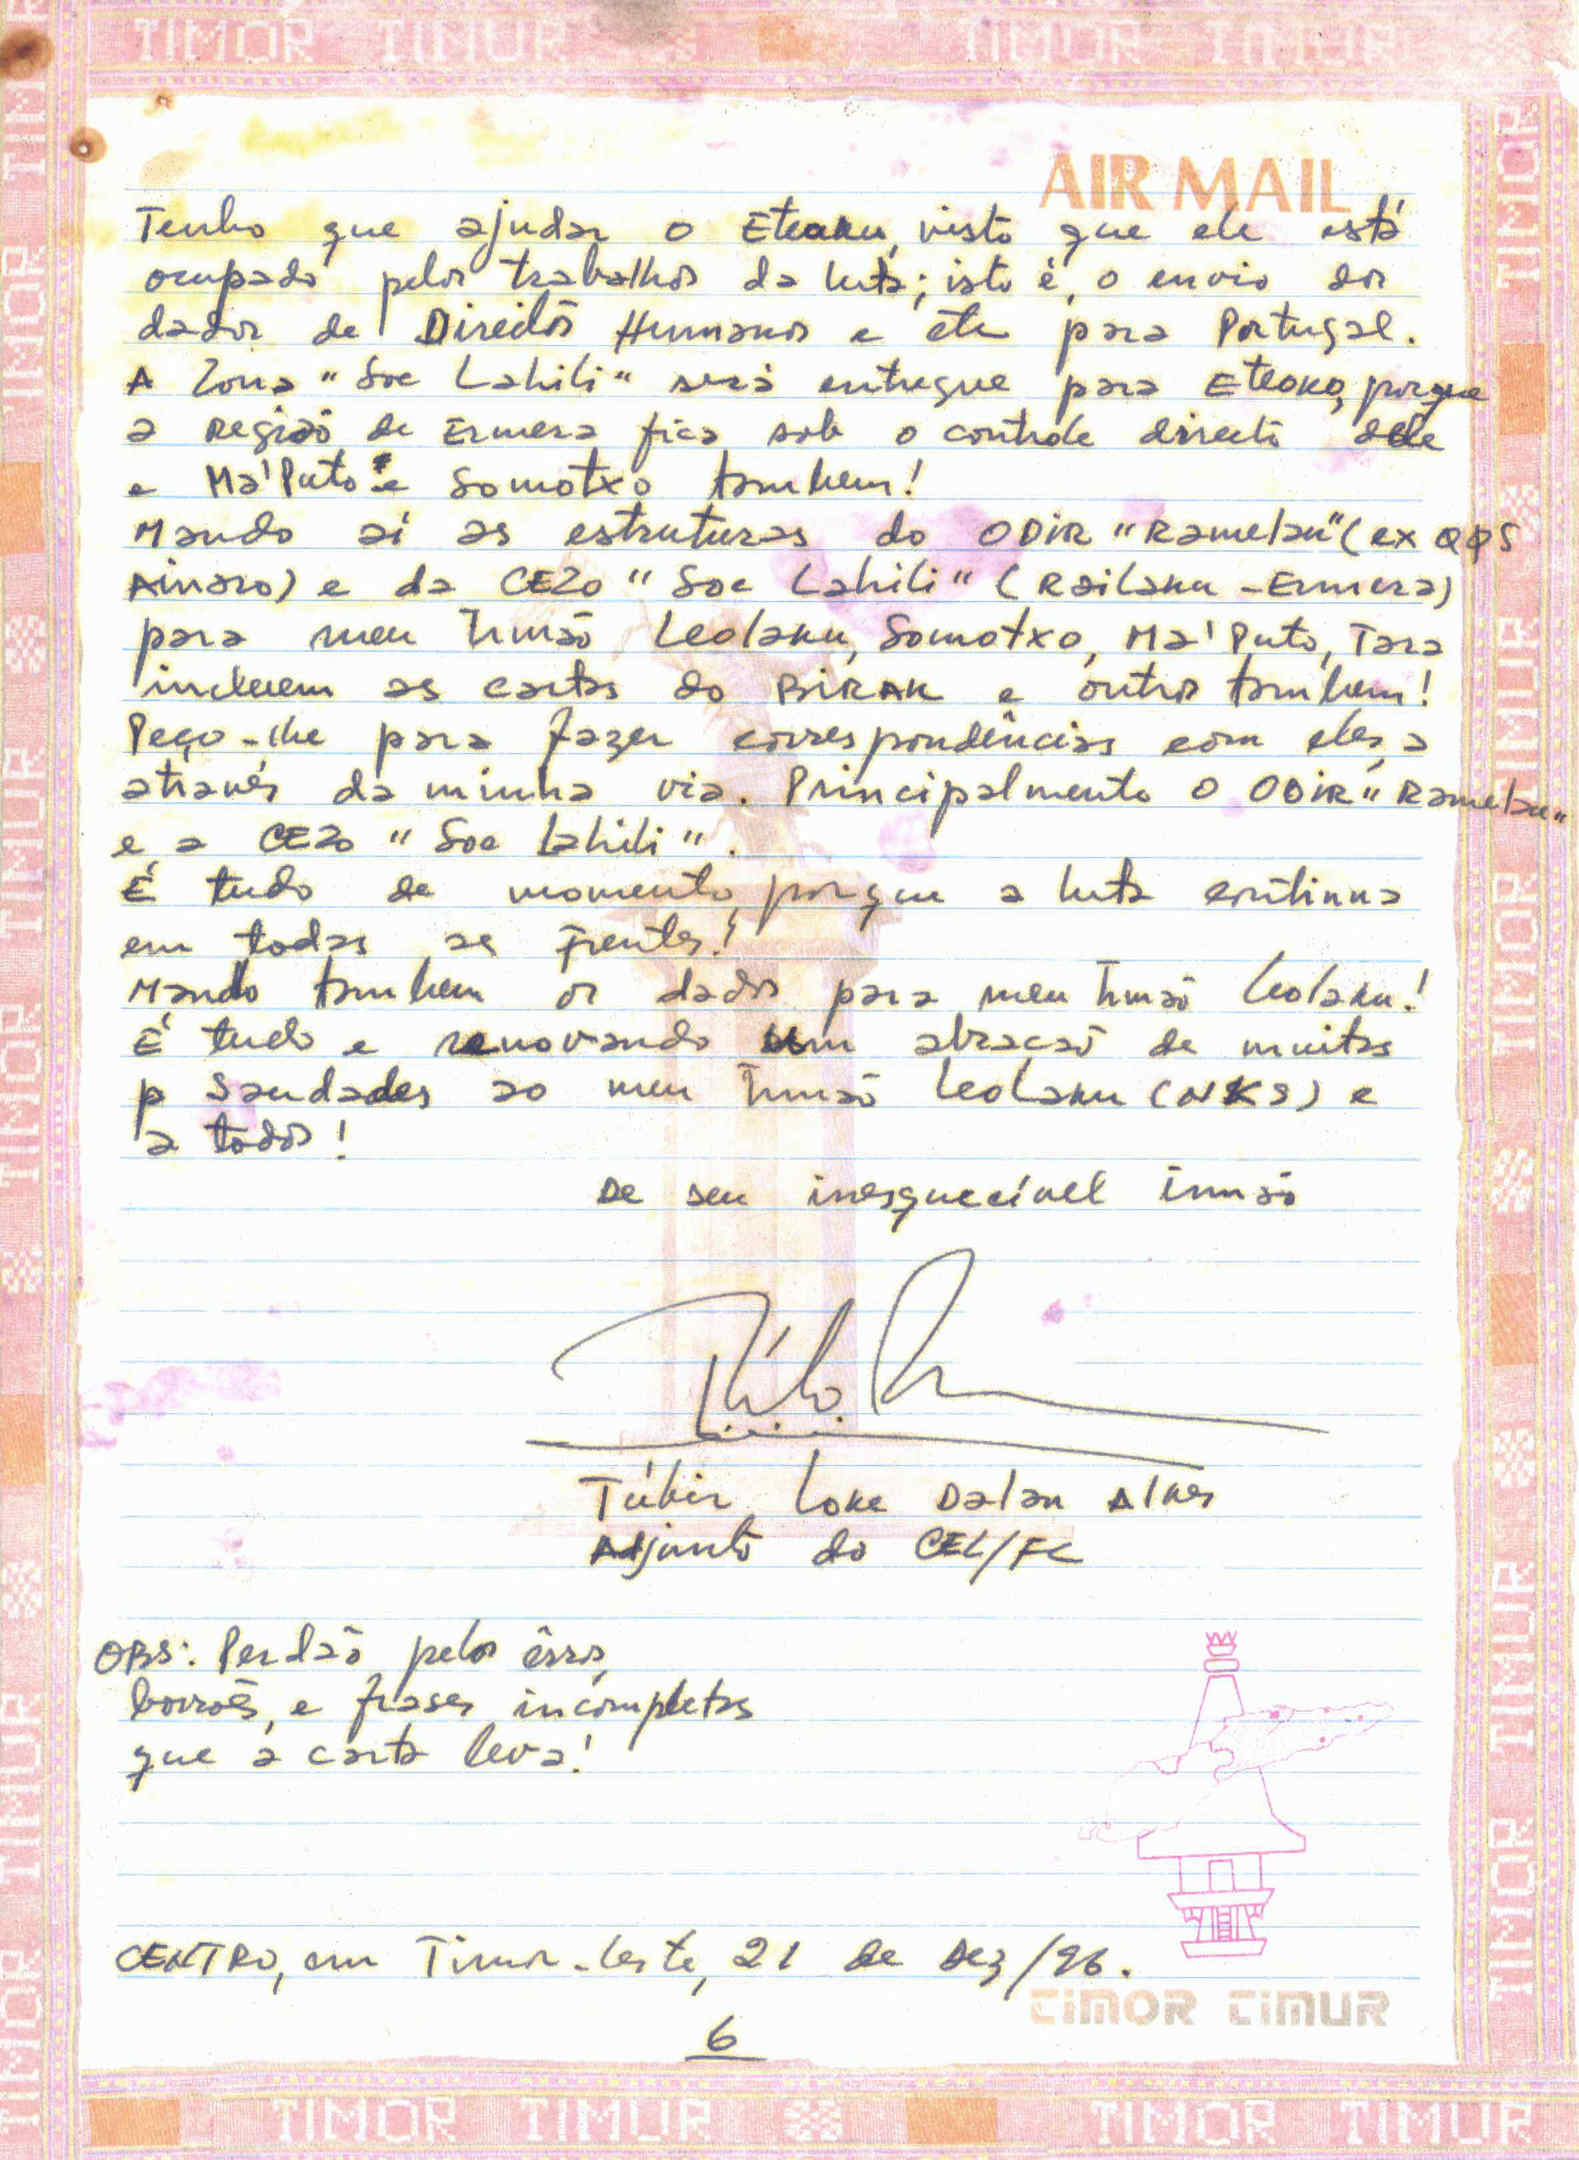 TIMOR TIMUR TIMOR TIMUR
AIR MAIL
Tenho que ajudar o Eteaku, visto que ele está
ocupado pelos trabalhos da luta; isto é, o envio dos
dados de Direitos Humanos e etc para Portugal.
A Zona "Soe Lahili" será entregue para Eteoko, porque
a região de Ermera fica sob o controle directo dele
e Ma'Puto e Somotxo tambem!
Mando aí as estruturas do ODIR "Ramelau" (ex
Ainaro) e da CEZO "Soe Lahili" (Railaku - Ermera)
para meu Irmão Leolaku, Somotxo, Ma'Puto, Tara
incluem as cartas do BIRAK e outros tambem!
Peço-lhe para fazer correspondências com eles, a
através da minha via. Principalmento o ODIR "Ramelau"
e a CEZO "Soe Lahili".
É tudo de momento, porque a luta continua
em todas as Frentes!
Mando tambem os dados para meu Irmão Leolaku!
É tudo e renovando um abracaõ de muitas
p Saudades ao meu Irmão Leolaku (NKS) e
a todos!
De seu inesquecível irmão
Túbir Loke Dalan Alves
Adjunto do CEL/FC
OBS: Perdão pelos êrros,
borroẽs, e frases incompletas
que a carta leva!
CENTRO, em Timor-Leste, 21 de Dez/96.
TIMOR TIMUR
6
TIMOR TIMUR TIMOR TIMUR